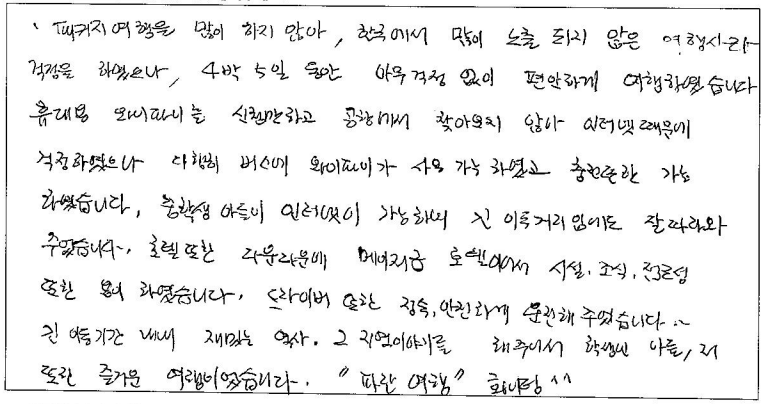 패키지여행을 많이 하지 않아, 한국에서 많이 노출 되지 않은 여행사라
걱정을 하였으나, 4박 5일 동안 아무걱정 없이 편안하게 여행하였습니다
휴대용 와이파이를 신청만하고 공항에서 찾아오지 않아 인터넷때문에
걱정하였으나 다행히 버스에 와이파이가 사용 가능하였고 충전또한 가능
하였습니다, 중학생 아들이 인터넷이 가능하여 긴 이동거리임에도 잘 따라와
주었습니다. 호텔 또한 다운타운에 메이저급 호텔이여서 시설, 조식, 접근성
또한 용이 하였습니다. 드라이버 또한 정숙, 안전하게 운전해 주었습니다~
긴 이동기간 내내 재밌는 역사. 그 지역이야기를 해주셔서 학생인 아들, 저
또한 즐거운 여행이었습니다. "파란 여행" 화이팅 ^^